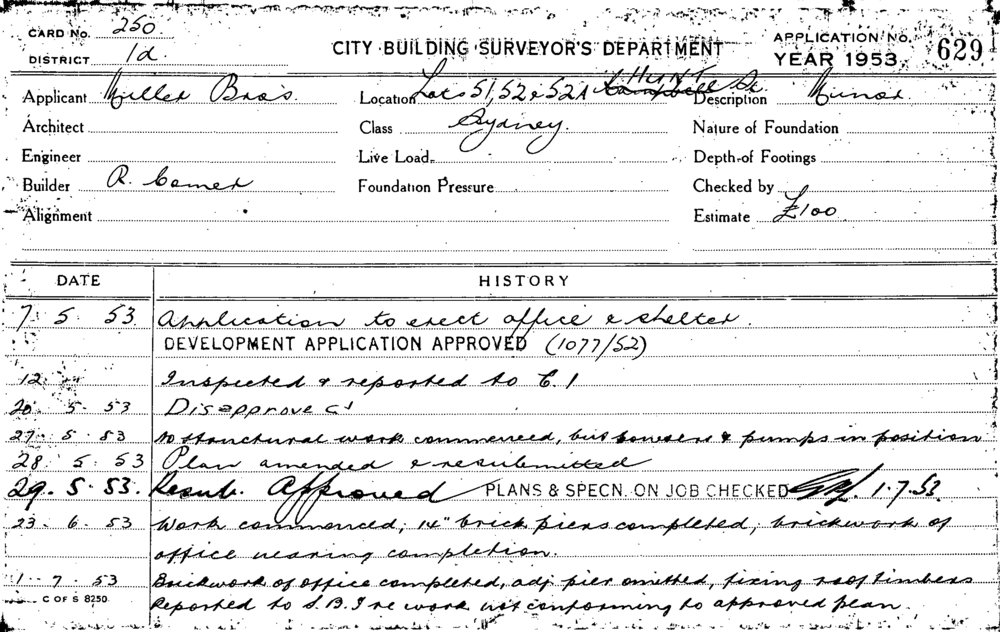 CARD No. 250
DISTRICT 1d
CITY BUILDING SURVEYOR'S DEPARTMENT
APPLICATION No. 629
YEAR 1953
Applicant Miller Bros. Location Lots 51, 52 & 52A HUNT Campbell St. Description Minor.
Architect Class Sydney. Nature of Foundation
Engineer Live Load Depth of Footings
Builder R. Comer Foundation Pressure Checked by
Alignment Estimate £100
DATE HISTORY
7. 5. 53. Application to erect office & shelter.
DEVELOPMENT APPLICATION APPROVED (1077/52)
12 Inspected & reported to C.I
20. 5. 53 Disapproved
27. 5. 53 No structural work commenced, but bowsers & pumps in position
28. 5. 53 Plan amended & resubmitted
29. 5. 53. Resub. Approved PLANS & SPECN. ON JOB CHECKED 1.7.53
23. 6. 53 Work commenced, 14" brick piers completed, brickwork of
office nearing completion.
1. 7. 53 Brickwork of office completed, adj. pier omitted, fixing roof timbers
C OF S 8250 Reported to S.B.I re work not conforming to approved plan.